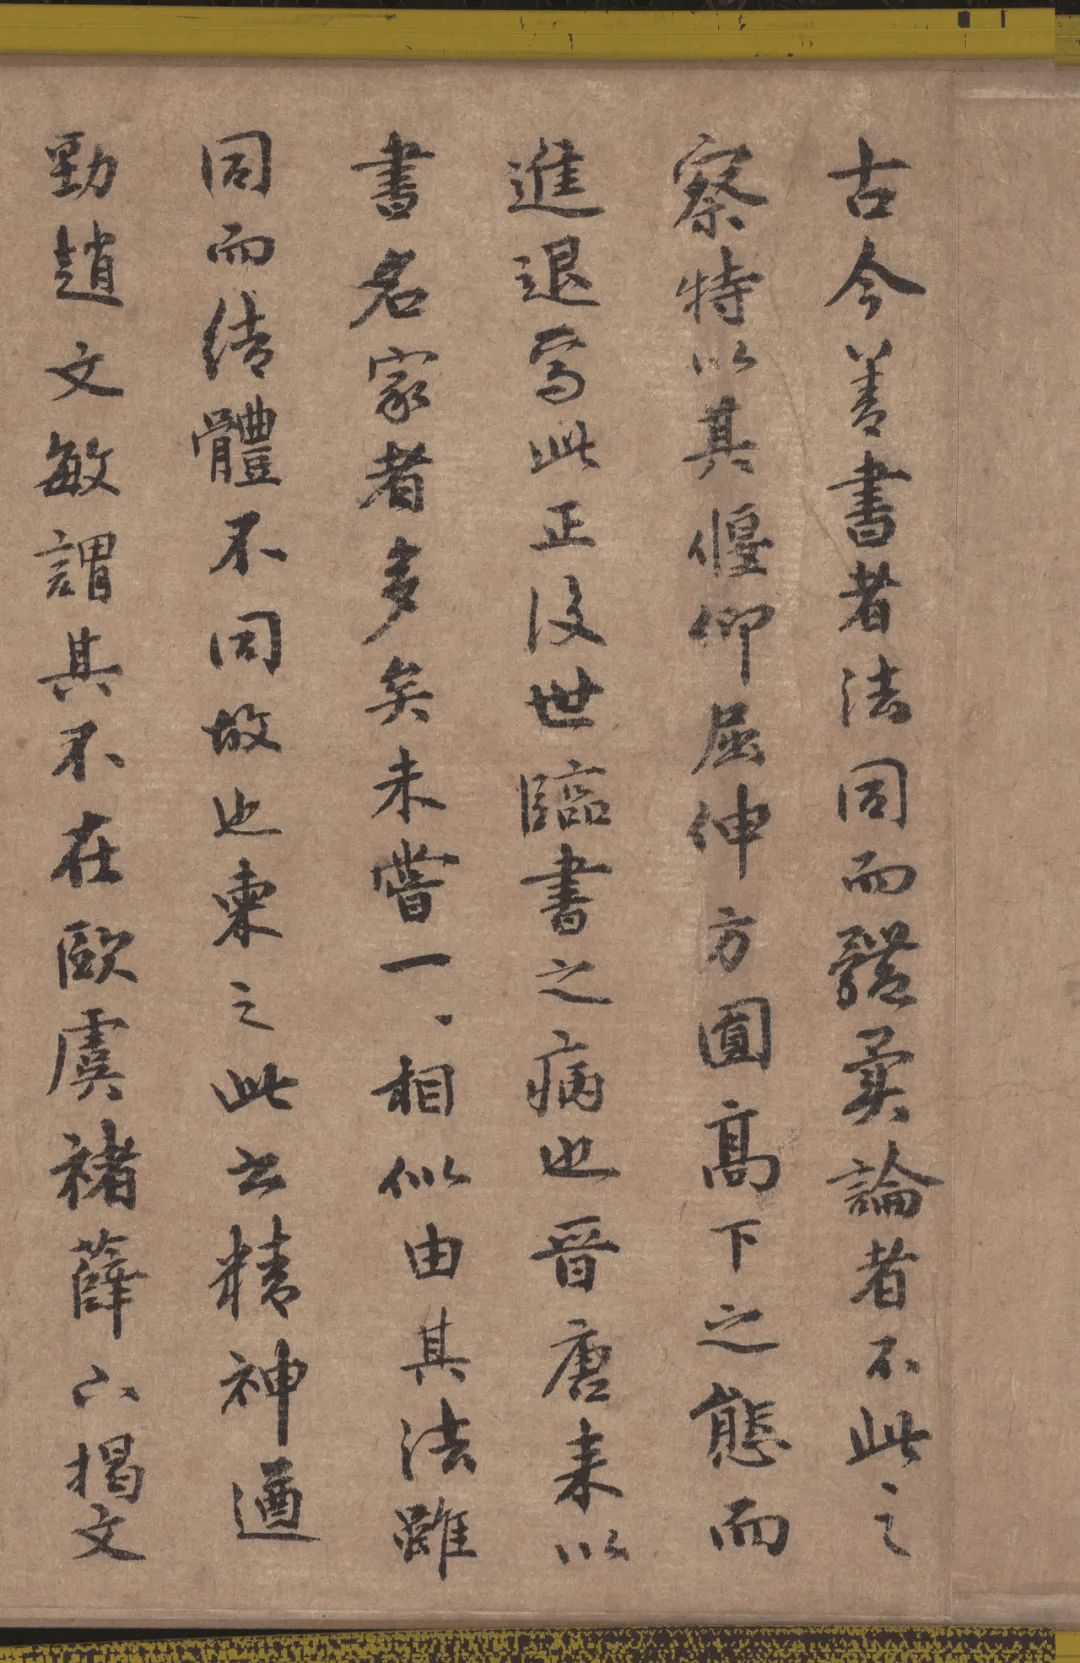 古今善書者法同而體異論者不此之
察特以其偃仰屈伸方圓高下之態而
進退焉此正後世臨書之病也晉唐来以
書名家者多矣未嘗一、相似由其法雖
同而結體不同故也柬之此書精神遒
勁趙文敏謂其不在歐虞褚薛下揭文